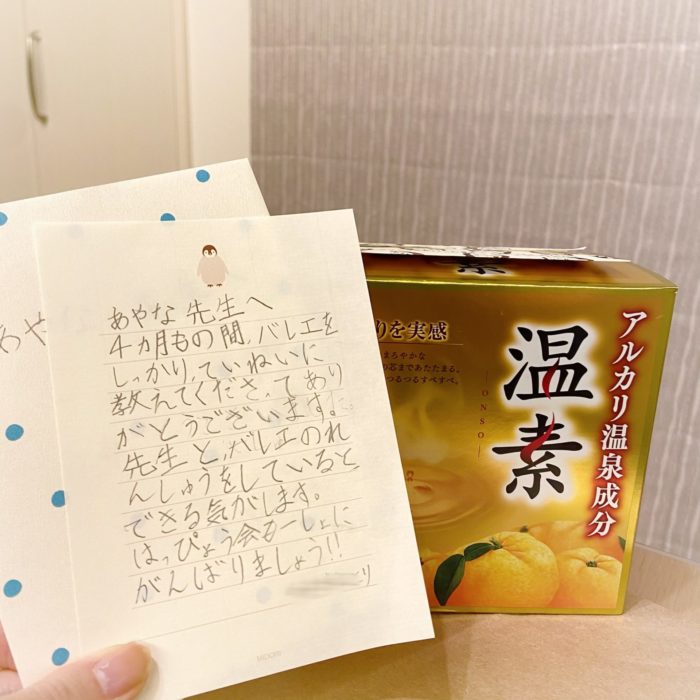 あやな先生へ
4ヵ月もの間、バレエを
しっかり、ていねいに
教えてくださってあり
がとうございます。
先生と、バレエのれ
んしゅうをしていると
できる気がします。
はっぴょう会もいっしょに
がんばりましょう!!
より
MIDORI
あや
素
りを実感
まろやかな
の芯まであたたまる。
つるつるすべすべ。
温素
ONSO
アルカリ温泉成分